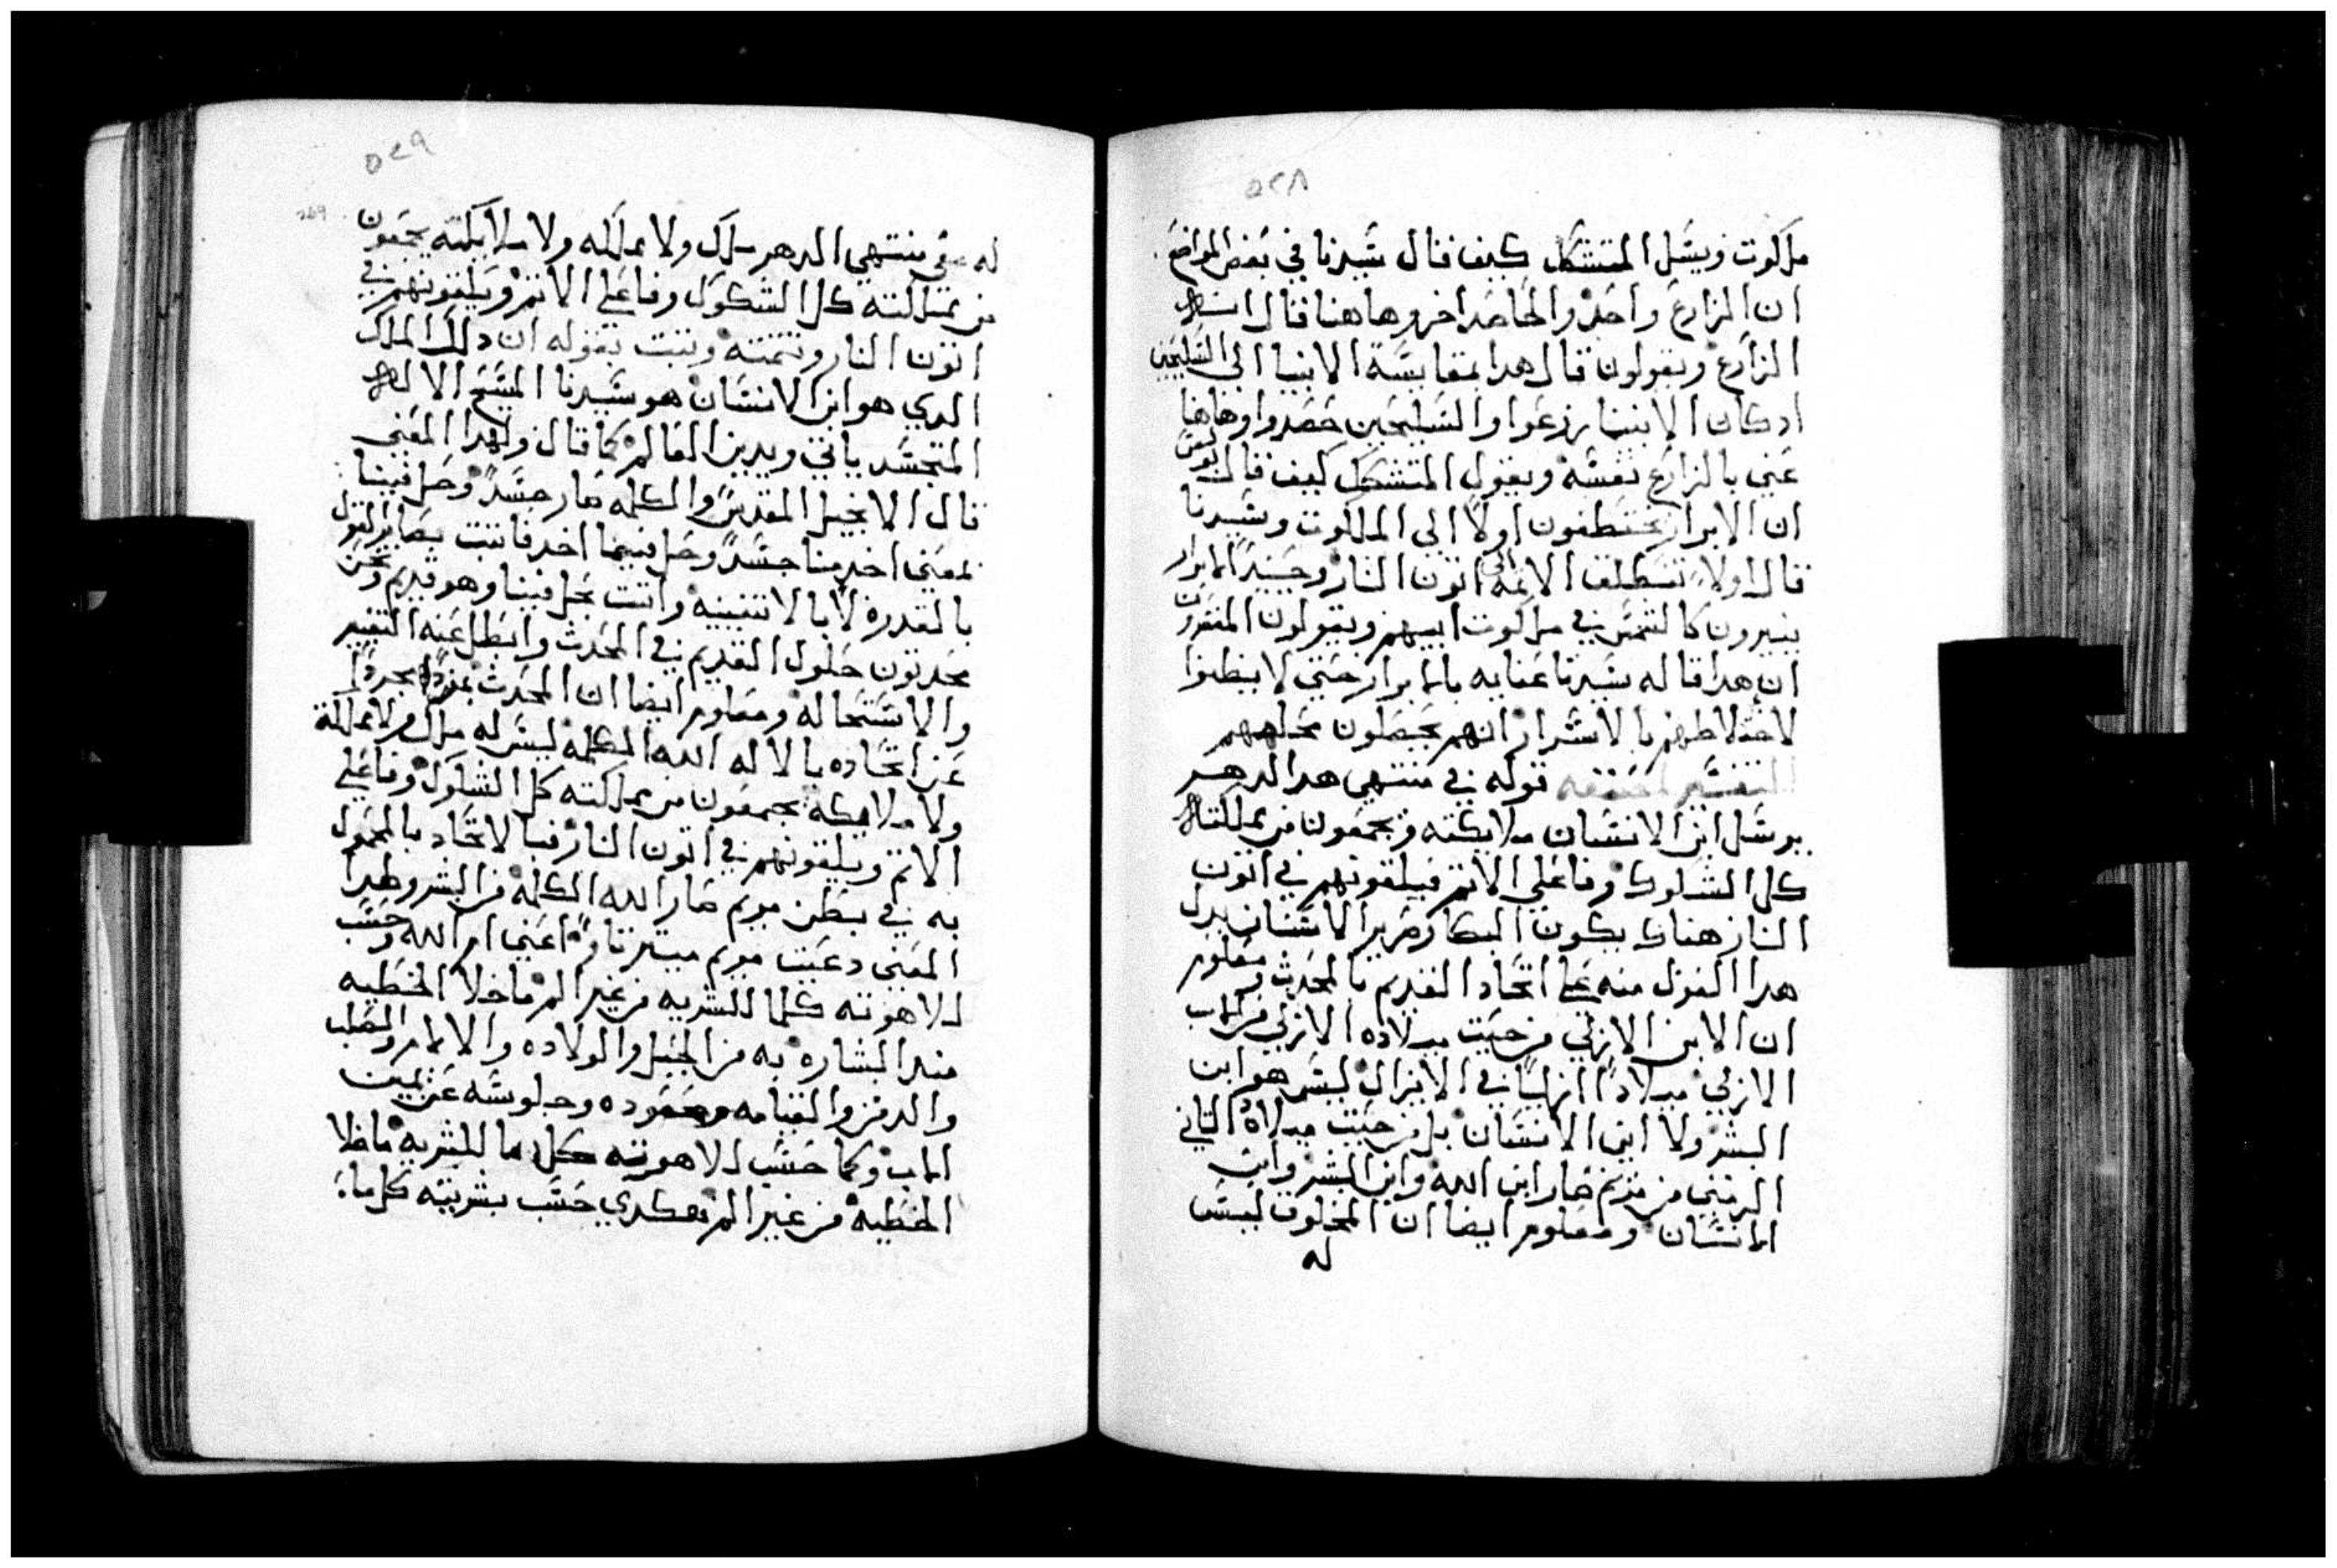 ٥٢٨
ملكوت ويسل المتشكك كيف قال سيدنا في بعض المواضع
ان الزارع واحد والحاصد اخر وهاهنا قال انه
الزارع ويقولون قال هدا بمقايسة الانبيا الى السليحين
ادكان الانبيا زرعوا والسليحين حصدوا وهاهنا
عني بالزارع نفسه ويقول المتشكك كيف قال بولس
ان الابرار يختطفون اولا الى الملكوت وسيدنا
قال اولا تتطلف الاتمه الى اتون النار وحينيد الابرار
ينيرون كالشمس في ملكوت ابيهم ويقولون المفسرون
ان هدا قاله سيدنا عنايه بالابرار حتى لا يظنوا
لاختلاطهم بالاشرار انهم يحصلون محلهم
التفسير لمصنفه قوله في منتهى هدا الدهر
يرسل ابن الانسان ملايكته ويجمعون من مملكته
كل الشكوك وفاعلي الاتم فيلقونهم في اتون
النار هناك يكون البكا وصرير الاسنان يدل
هدا القول منه على اتحاد القديم بالمحدث ومعلوم
ان الابن الازلي من حيت ميلاده الازلي من الاب
الازلي ميلادا ازليا في الازال ليس هو ابن
البشر ولا ابن الانسان بل من حيت ميلاده التاني
الزمني من مريم صار ابن الله وابن البشر وابن
الانسان ومعلوم ايضا ان المخلوق ليس
له
٥٢٩
269
له في منتهى الدهر ملك ولا مملكه ولا ملايكته يجمعون
من مملكته كل الشكوك وفاعلي الاتم ويلقونهم في
اتون النار وتتمته ويتبت بقوله ان دلك الملك
الدي هو ابن الانسان هو سيدنا المسيح الاله
المتجسد ياتي ويدين العالم كما قال ولهدا المعنى
قال الانجيل المقدس والكلمه صار جسدا وحل فينا
لمعنى اخد منا جسدا وحل فيما اخد فاتبت بصاير القول
بالقدره لا بالاتنينيه واتبت بحل فينا وهو قديم ونحن
محدتون حلول القديم في المحدت وابطل عنه التغيير
والاستحاله ومعلوم ايضا ان المحدت بمفرده مجردا
عن اتحاده بالاله الله الكلمه ليس له ملك ولا مملكة
ولا ملايكه يجمعون من مملكته كل الشكوك وفاعلي
الاتم ويلقونهم في اتون النار فبالاتحاد بالمحول
به في بطن مريم صار الله الكلمه من البشر ولهدا
المعنى دعيت مريم ميترتاوا اعني ام الله وحسب
لاهوته كلما للبشريه من غير الم ما خلا الخطيه
مند البشاره به من الحبل والولاده والالام والصلب
والدفن والقيامه وصعوده وجلوسه عن يمين
الاب وكما حسب لاهوته كل ما للبشريه ما خلا
الخطيه من غير الم هكدي حسب بشريته كل ما